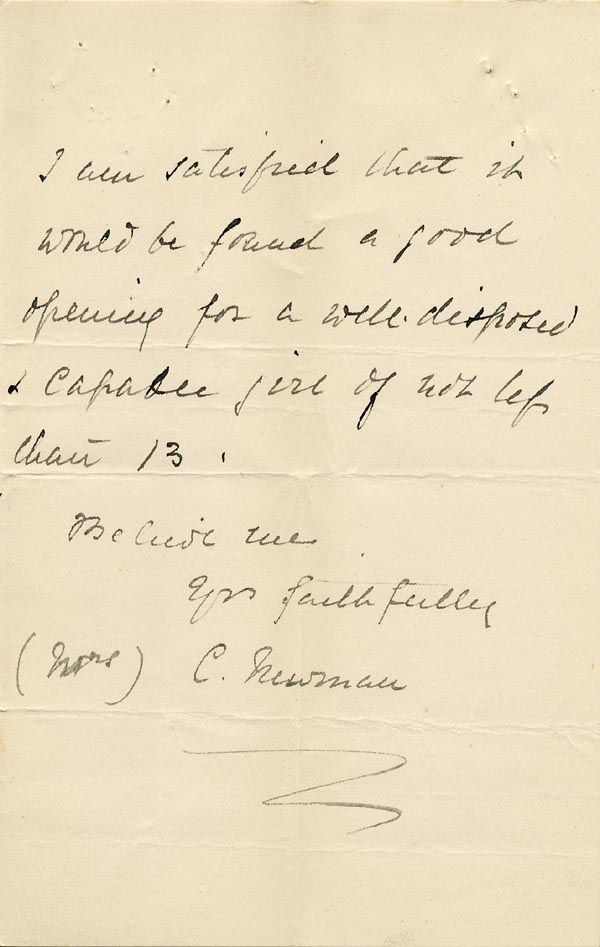 I am satisfied that it
would be found a good
opening for a well-disposed
& capable girl of not less
than 13.
Believe me
Yrs faithfully
(Mrs) C. Newman